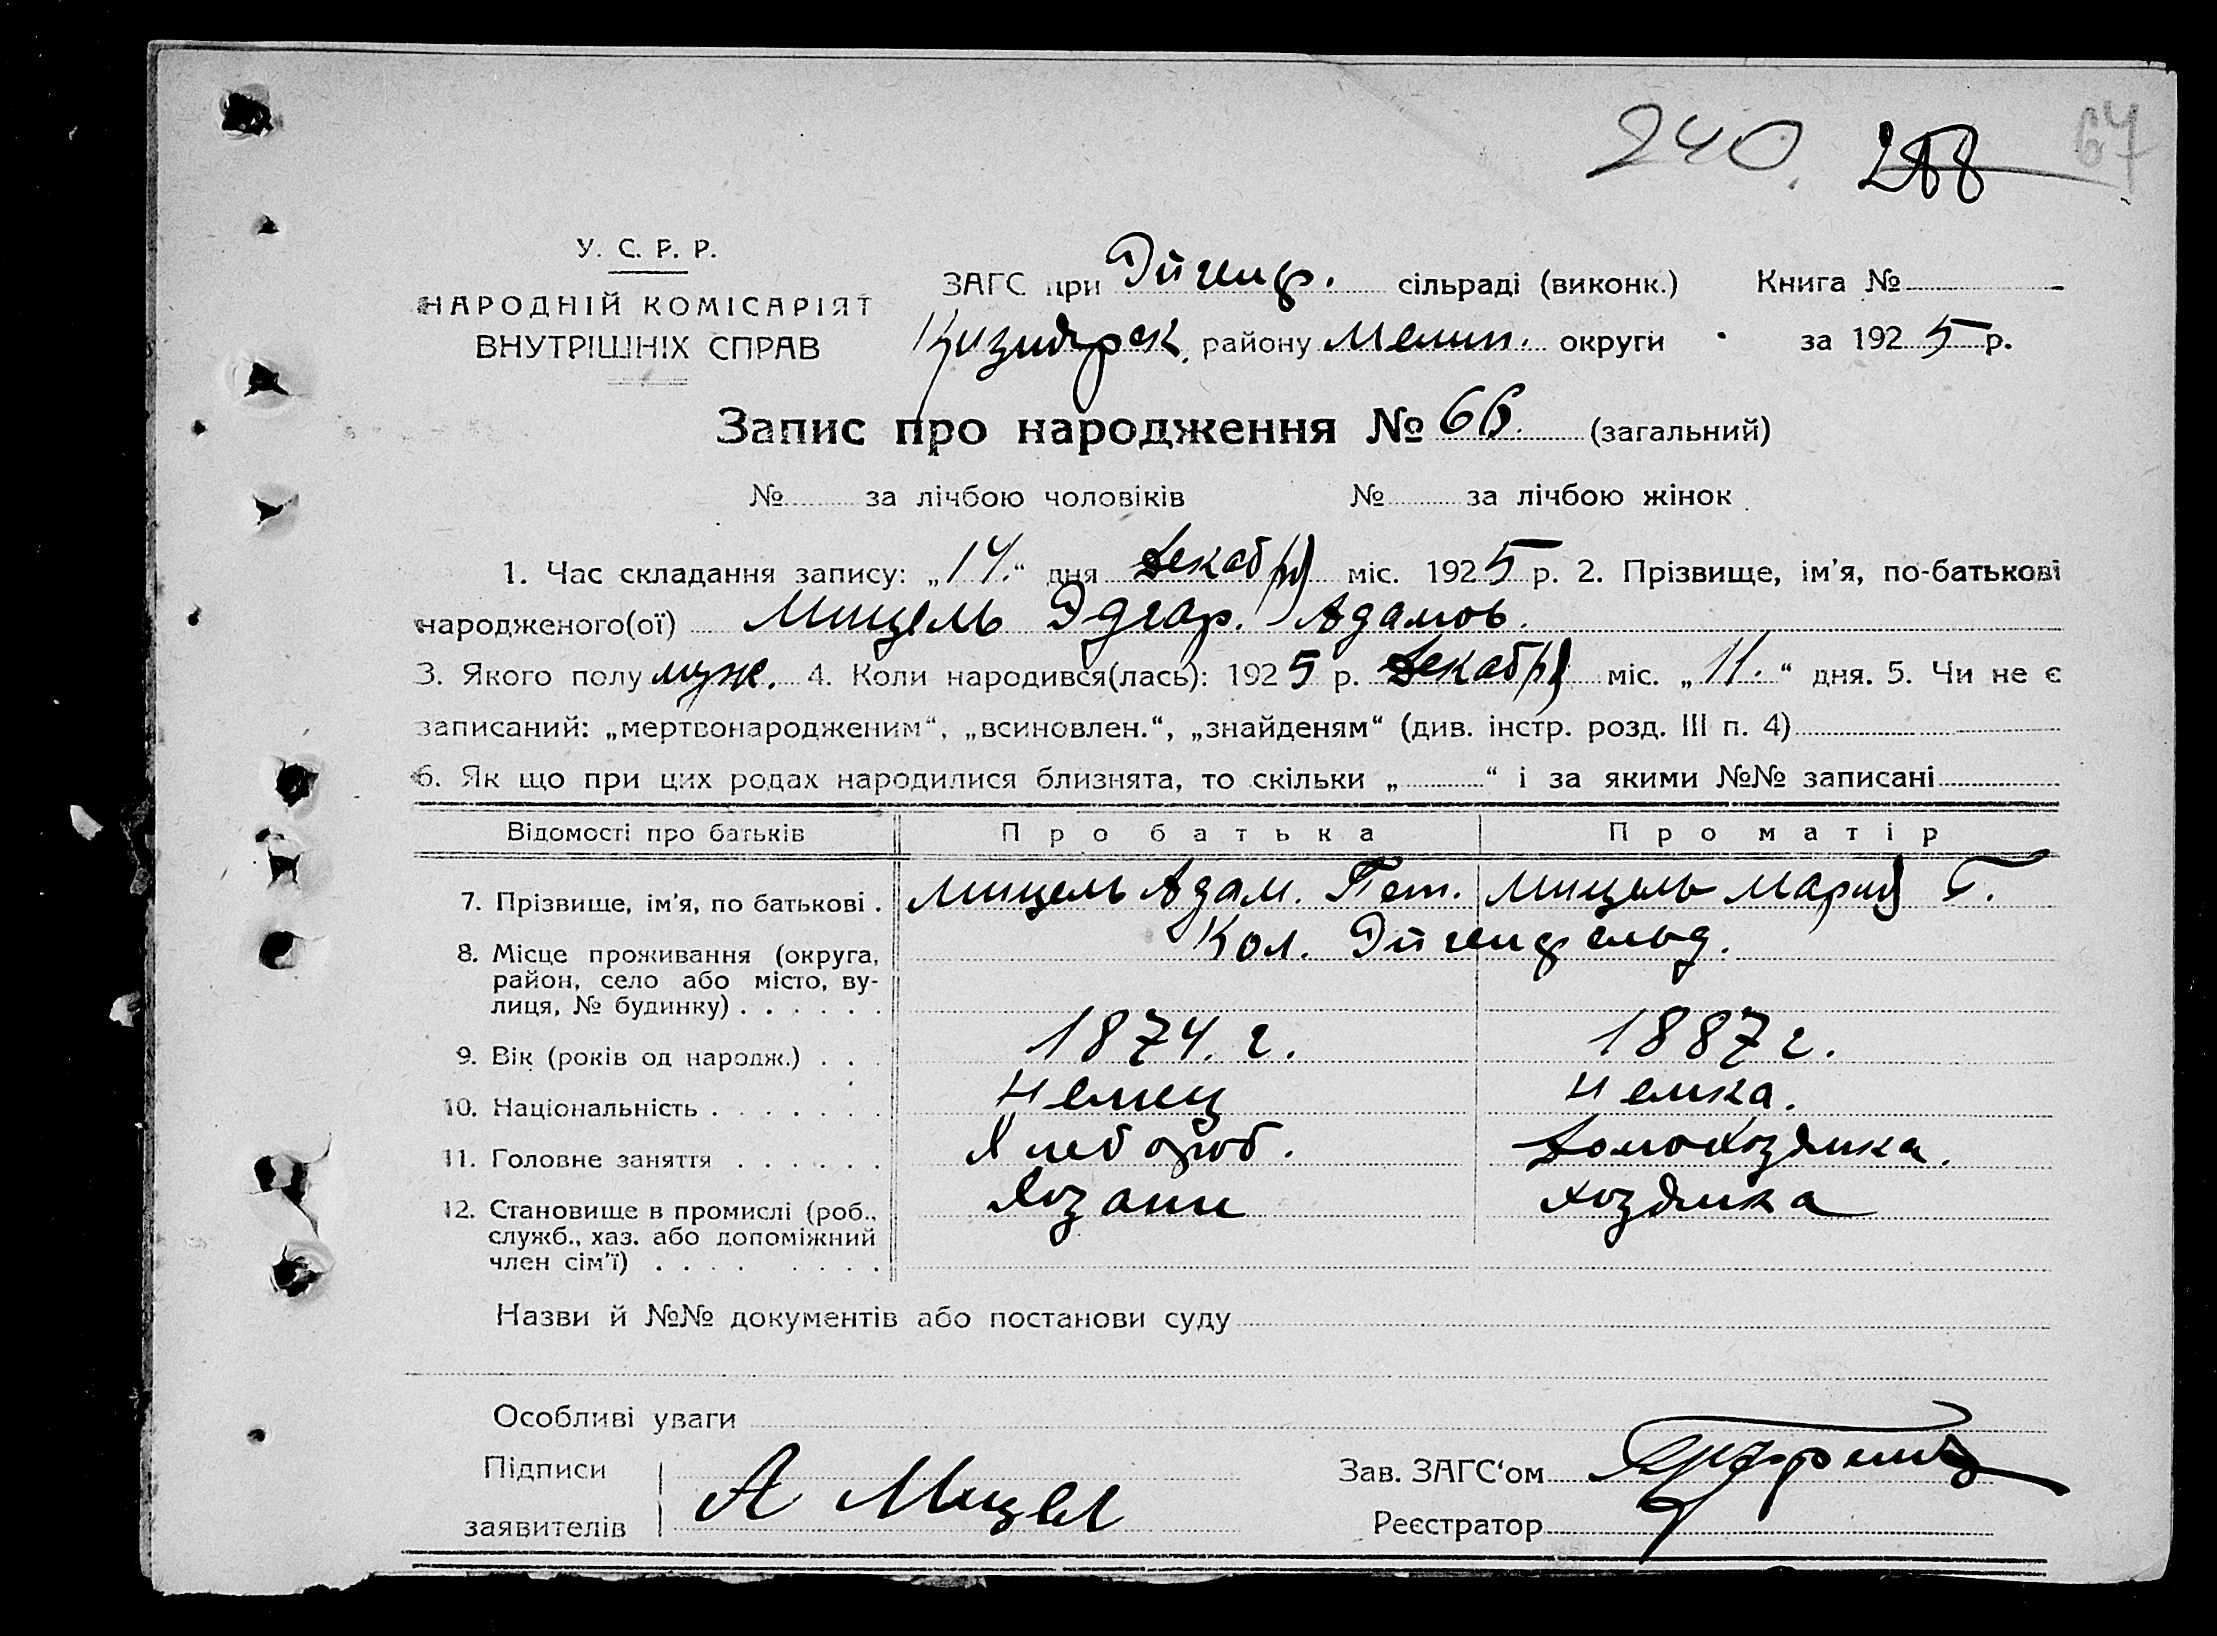 240. 288 67
У. С. Р. Р.
НАРОДНІЙ КОМІСАРІЯТ
ВНУТРІШНІХ СПРАВ
ЗАГС при Эйгенф. сільраді (виконк.) Книга №
Кизиярск. району Мелит. округи за 1925 р.
Запис про народження № 66. (загальний)
№ за лічбою чоловіків № за лічбою жінок
1. Час складання запису: „14.“ дня Декабря міс. 1925 р. 2. Прізвище, ім'я, по-батькові
народженого(ої) Мицель Эдгар. Адамов.
3. Якого полу муж. 4. Коли народився(лась): 1925 р. Декабря міс. „11.“ дня. 5. Чи не є
записаний: „мертвонародженим“, „всиновлен.“, „знайденям“ (див. інстр. розд. III п. 4)
6. Як що при цих родах народилися близнята, то скільки „ “ і за якими №№ записані
Відомості про батьків Про батька Про матір
7. Прізвище, ім'я, по батькові . Мицель Адам. Пет. Мицель Мария Г.
8. Місце проживання (округа, Кол. Эйгенфельд.
район, село або місто, ву-
лиця, № будинку) . . . . . .
9. Вік (років од народж.) . . . 1874. г. 1887 г.
10. Національність . . . . . . . Немец Немка.
11. Головне заняття . . . . . . Хлебороб. Домохозяйка.
12. Становище в промислі (роб., Хозаин хозяйка
служб., хаз. або допоміжний
член сім'ї) . . . . . . . .
Назви й №№ документів або постанови суду
Особливі уваги
Підписи
заявителів А Мицел
Зав. ЗАГС'ом
Реєстратор